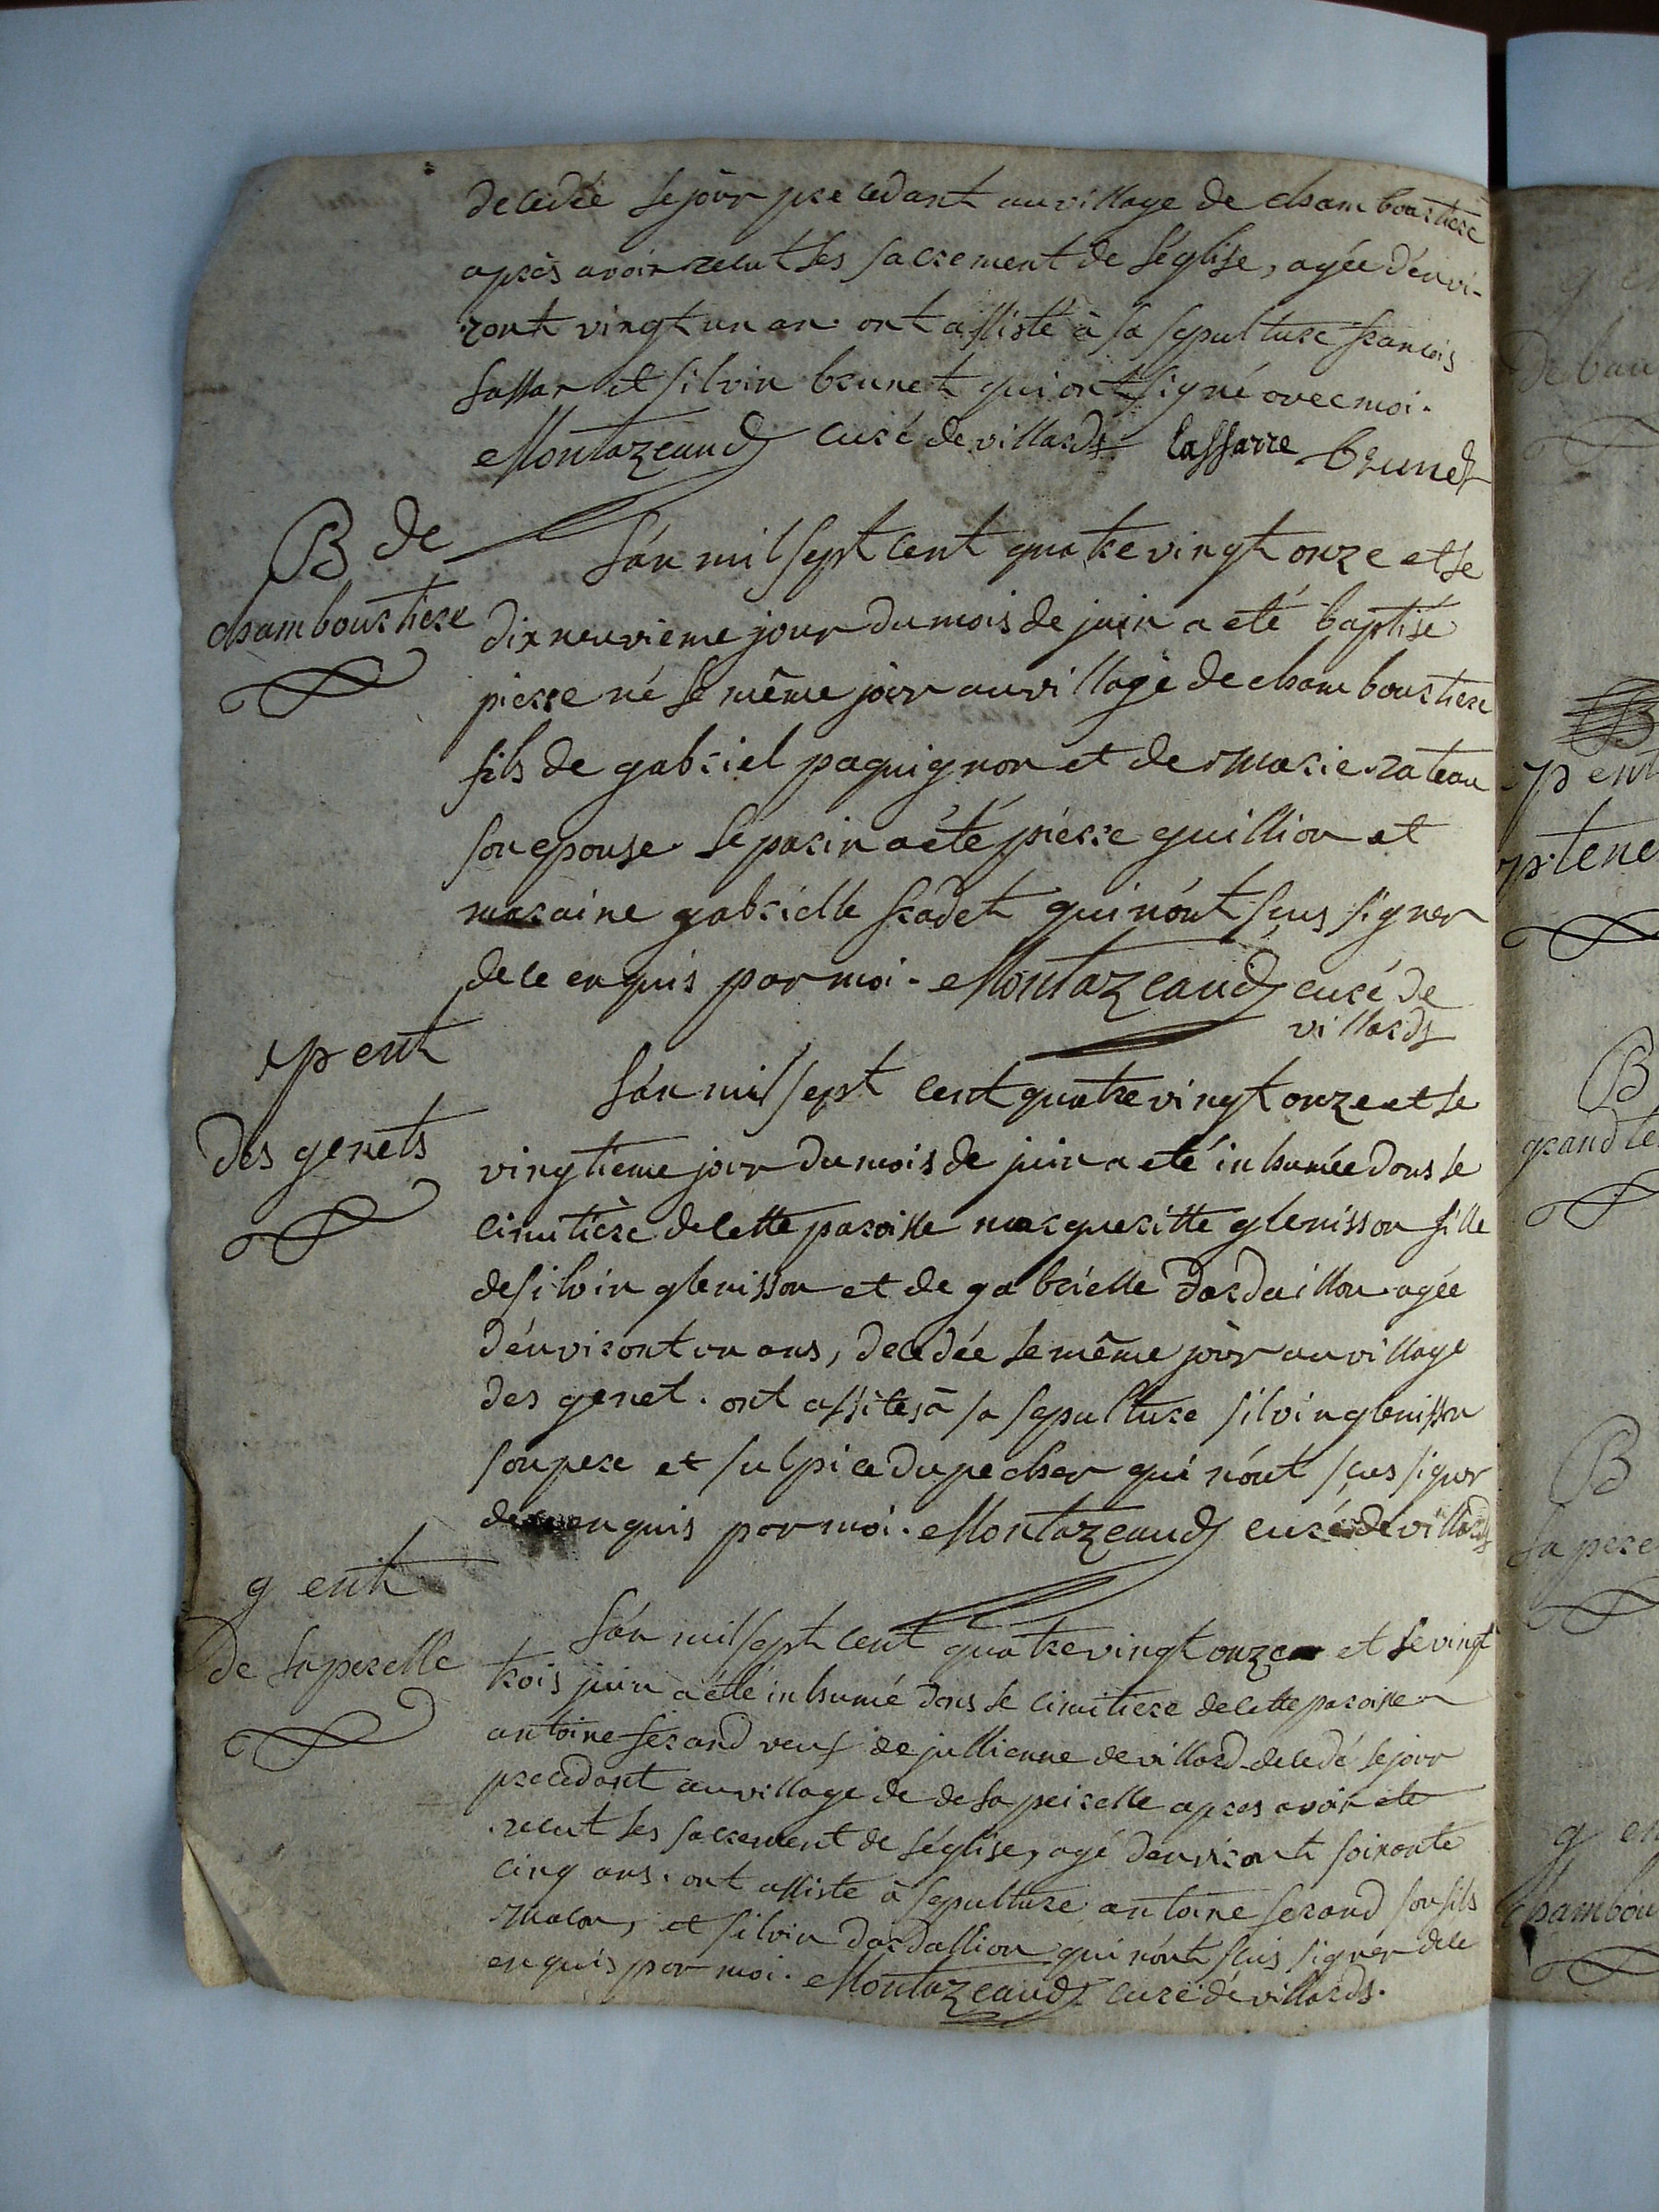 decedée le jour precedant au village de chambourtiere
après avoir recut les sacrement de l'église, agée d'envi-
ront vingt un an. ont assisté à sa sepulture francois
lassar et silvin brunet qui ont signé avec moi.
Montazeaud curé de villards lassarre brunet
B de
chambourtiere
l'an mil sept cent quatre vingt onze et le
dix neuvieme jour du mois de juin a eté baptisé
pierre né le même jour au village de chambourtiere
fils de gabriel paquignon et de marie rateau
son epouse. le parin a été pierre guillion et
maraine gabrielle fradet qui n'ont sçus signer
de ce enquis par moi. Montazeaud curé de
villards
p ent
des genets
l'an mil sept cent quatre vingt onze et le
vingtieme jour du mois de juin a eté inhumée dans le
cimitière de cette paroisse margueritte glenisson fille
de silvin glenisson et de gabrielle dardaillon agée
d'environt un ans, decedée le même jour au village
des genet. ont assites à sa sepulture silvin glenisson
son pere et sulpice dupecher qui n'ont sçus signer
de ce enquis par moi. Montazeaud curé de villards
g ent
de laperelle
l'an mil sept cent quatre vingt onze et le vingt
trois juin a été inhumé dans le cimitiere de cette paroisse
antoine ferand veuf de jullienne de villard decedé le jour
precedant au village de de la peirelle apres avoir eté
recut les sacrement de l'église, agé d'environt soixante
cinq ans. ont assisté à sepulture antoine ferand son fils
macon, et silvin dardallion qui n'ont sçus signér de ce
enquis par moi. Montazeaud curé de villards.
p ent
B
grand te
B
la pere
g en
chambou